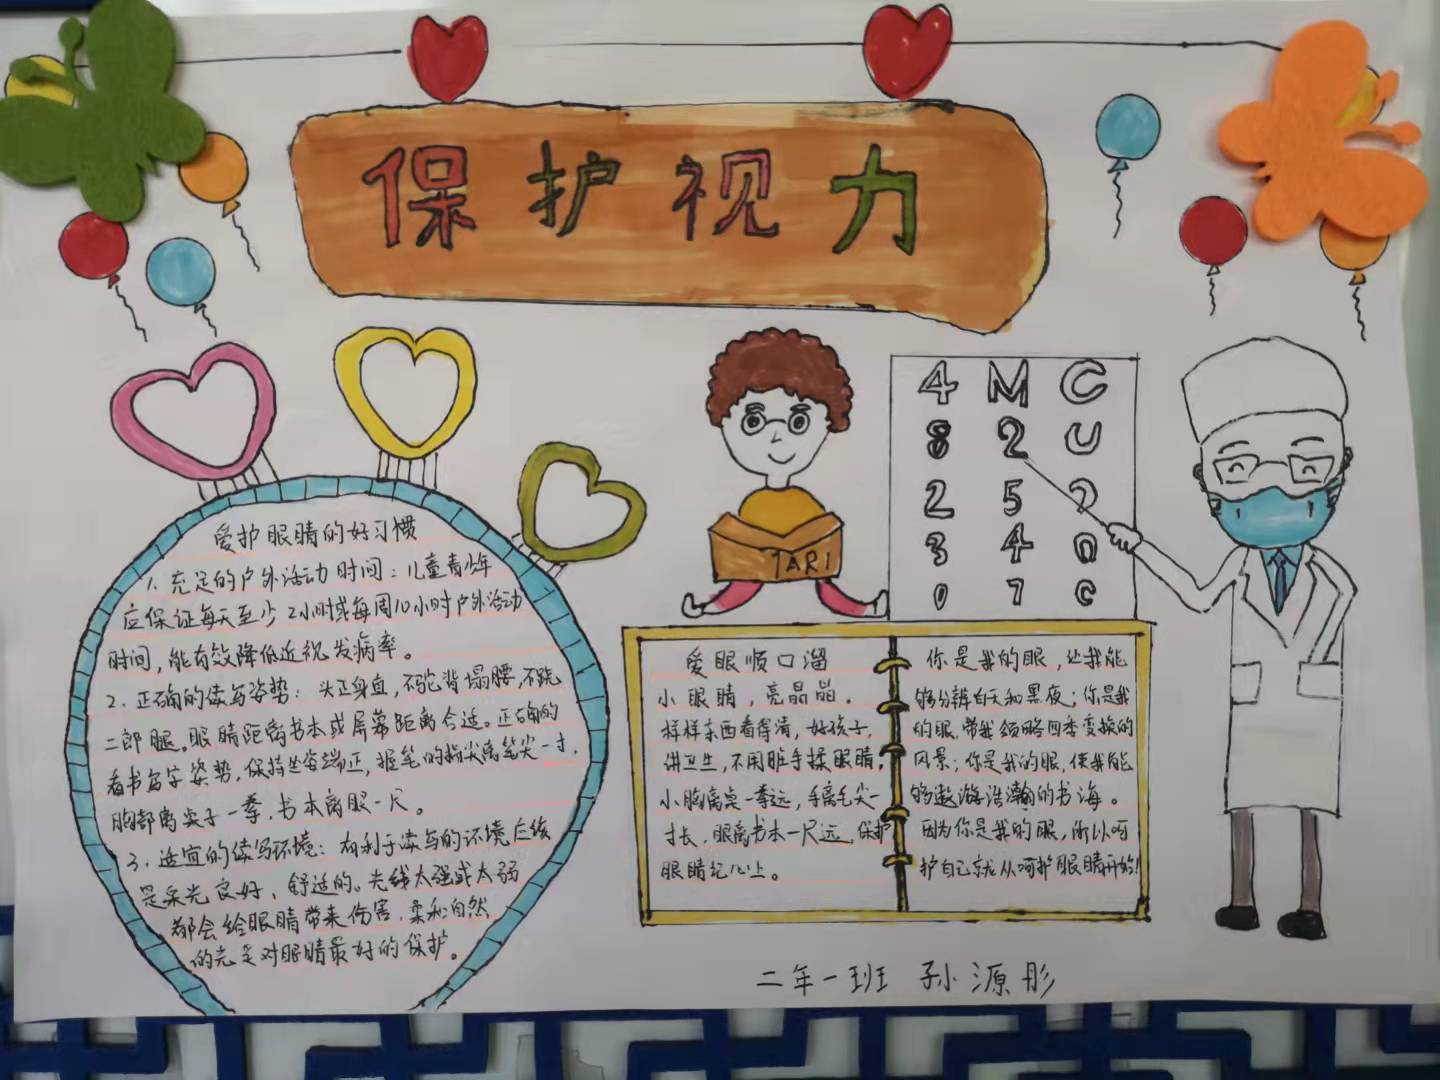 保护视力
爱护眼睛的好习惯
1、充足的户外活动时间：儿童青少年
应保证每天至少2小时或每周10小时户外活动
时间，能有效降低近视发病率。
2、正确的读写姿势：头正身直，不驼背塌腰，不跷
二郎腿。眼睛距离书本或屏幕距离合适。正确的
看书写字姿势，保持坐姿端正，握笔的指尖离笔尖一寸，
胸部离桌子一拳，书本离眼一尺。
3、适宜的读写环境：有利于读写的环境应该
是采光良好，舒适的。光线太强或太弱
都会给眼睛带来伤害，柔和自然
的光是对眼睛最好的保护。
TARI
4 M C
8 2 U
2 5
3 4 n
0 7 c
爱眼顺口溜
小眼睛，亮晶晶，
样样东西看得清，好孩子，
讲卫生，不用脏手揉眼睛，
小胸离桌一拳远，手离毛尖一
寸长，眼离书本一尺远，保护
眼睛记心上。
你是我的眼，让我能
够分辨白天和黑夜；你是我
的眼，带我领略四季变换的
风景；你是我的眼，使我能
够遨游浩瀚的书海。
因为你是我的眼，所以呵
护自己就从呵护眼睛开始！
二年一班 孙源彤